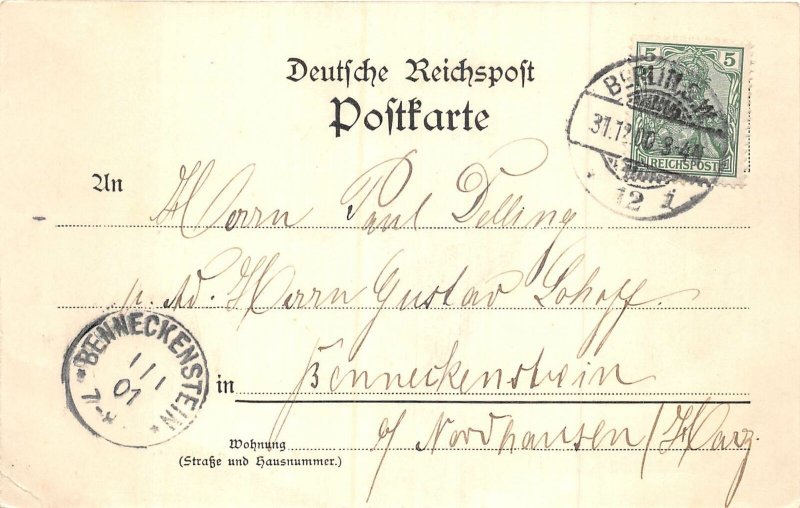 5 5
REICHSPOST
BERLIN S.W.
31.12.00 3-4N
* 12 i
Deutsche Reichspost
Postkarte
An
Herrn Paul Delling
p. Ad. Herrn Gustav Lohoff
BENNECKENSTEIN
1/1
01
7-8
in Benneckenstein
Wohnung
(Straße und Hausnummer.)
b/ Nordhausen/Harz.